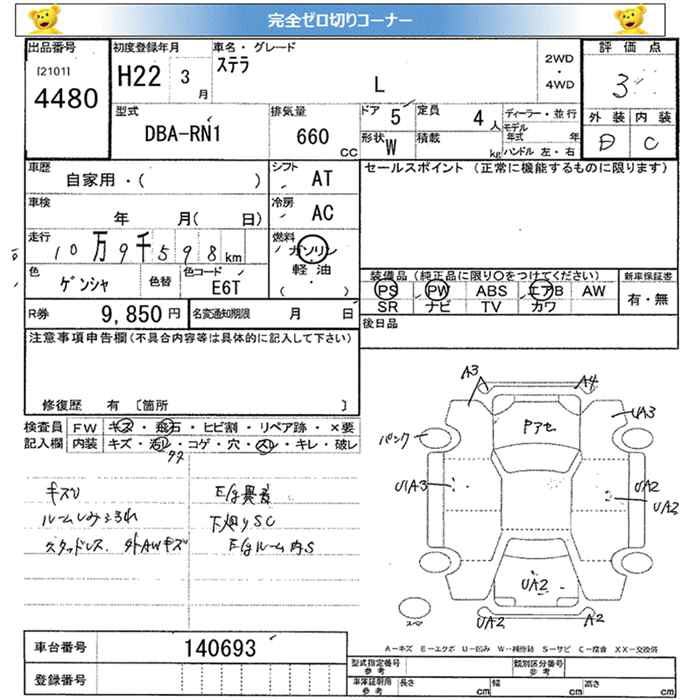 完全ゼロ切りコーナー
出品番号 [2101] 4480
初度登録年月 H22 3 月
車名・グレード ステラ L
2WD ・ 4WD
評価点 3
外装 D 内装 C
型式 DBA-RN1
排気量 660 CC
ドア 5 定員 4 人
形状 W 積載 kg
ディーラー・並行
モデル年式 年
ハンドル 左・右
車歴 自家用・( )
シフト AT
車検 年 月( 日)
冷房 AC
走行 10万9千598km
燃料 ガソリン・軽油・( )
色 ゲンシャ 色替 色コード E6T
R券 9,850 円 名変通知期限 月 日
セールスポイント (正常に機能するものに限ります)
装備品 (純正品に限り○をつけてください)
PS PW ABS エアB AW
SR ナビ TV カワ
新車保証書 有・無
後日品
注意事項申告欄(不具合内容等は具体的に記入して下さい)
修復歴 有 〔箇所 〕
検査員記入欄
FW キズ・飛石・ヒビ割・リペア跡・×要
内装 キズ・汚レ・コゲ・穴・スレ・キレ・破レ
キズU
ルームしみ
スタッドレス. 外AWキズ
E/g異音
下廻りSC
E/gルーム内S
A3 A4
Pアセ
UA3
パンク
UA3
UA2
UA3
UA2
UA2 A2
スペア
A-キズ E-エクボ U-凹み W-補修跡 S-サビ C-腐食 XX-交換済
車台番号 140693
登録番号
型式指定番号 参考 類別区分番号 参考
車庫証明用 参考 長さ cm 幅 cm 高さ cm